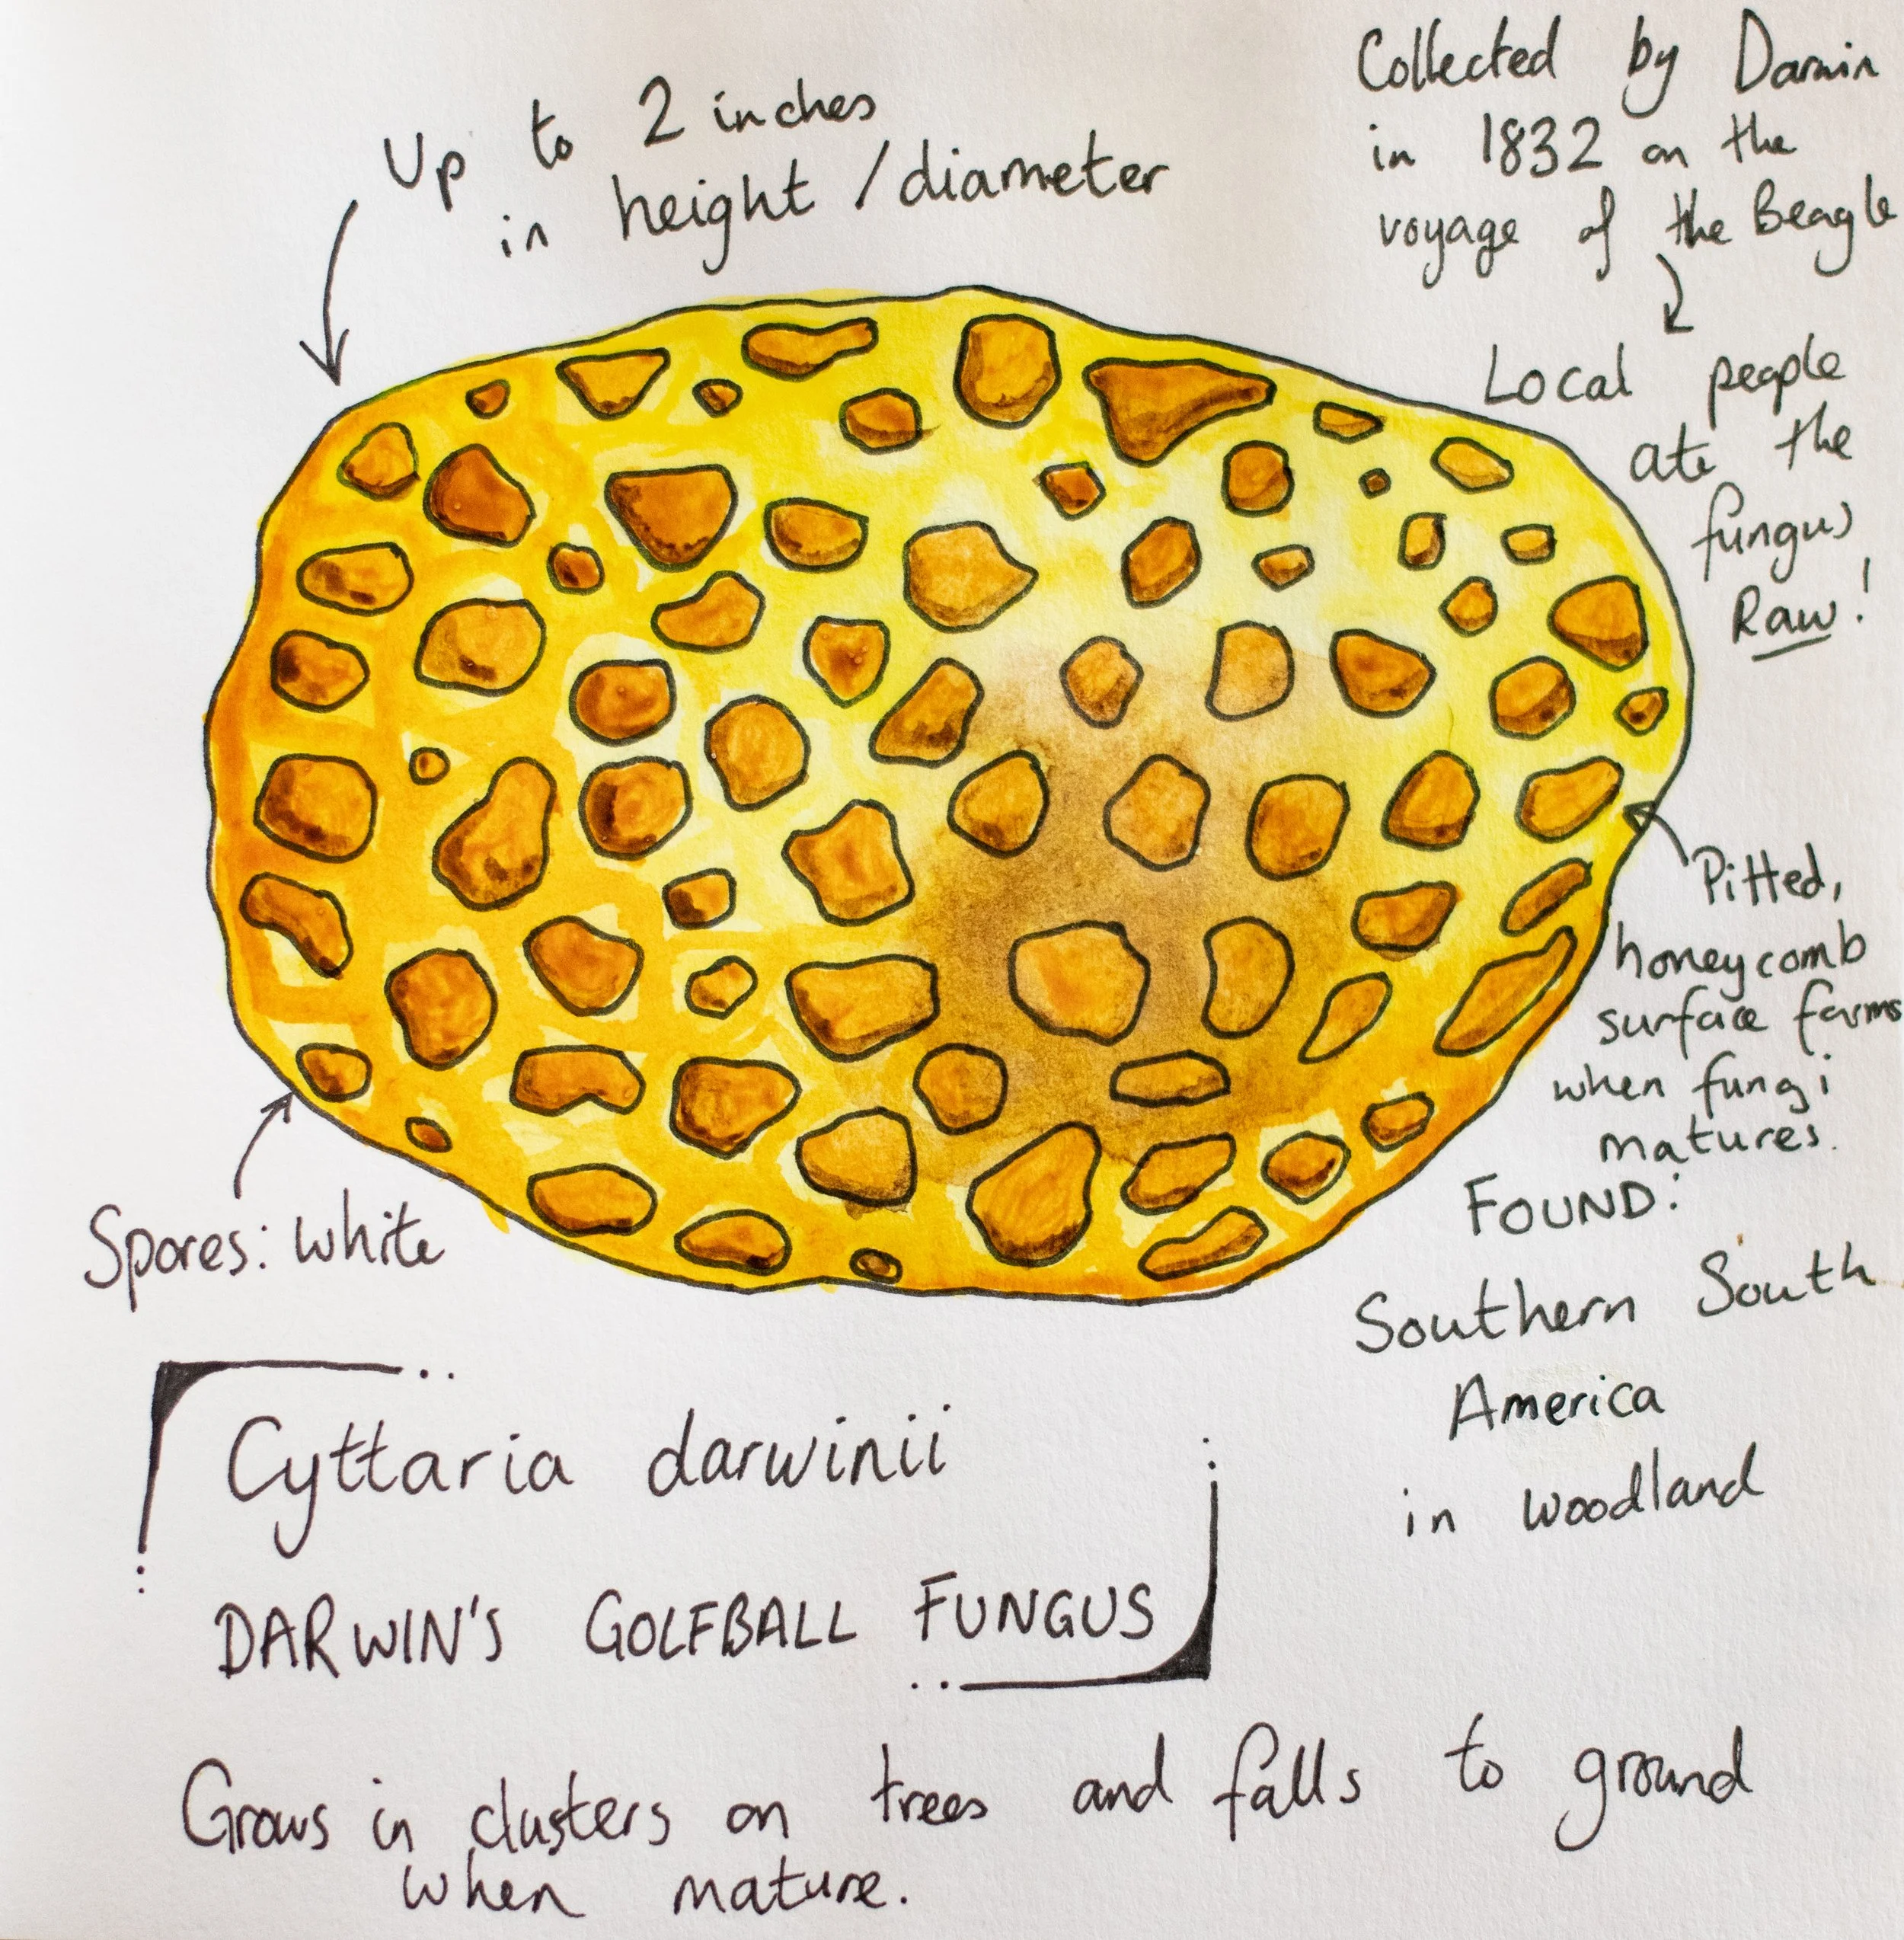 Up to 2 inches
in height / diameter
Collected by Darwin
in 1832 on the
voyage of the Beagle
Local people
ate the
fungus
Raw!
Pitted,
honeycomb
surface forms
when fungi
matures.
Spores: white
FOUND:
Southern South
America
in woodland
Cyttaria darwinii
DARWIN'S GOLFBALL FUNGUS
Grows in clusters on trees and falls to ground
when mature.